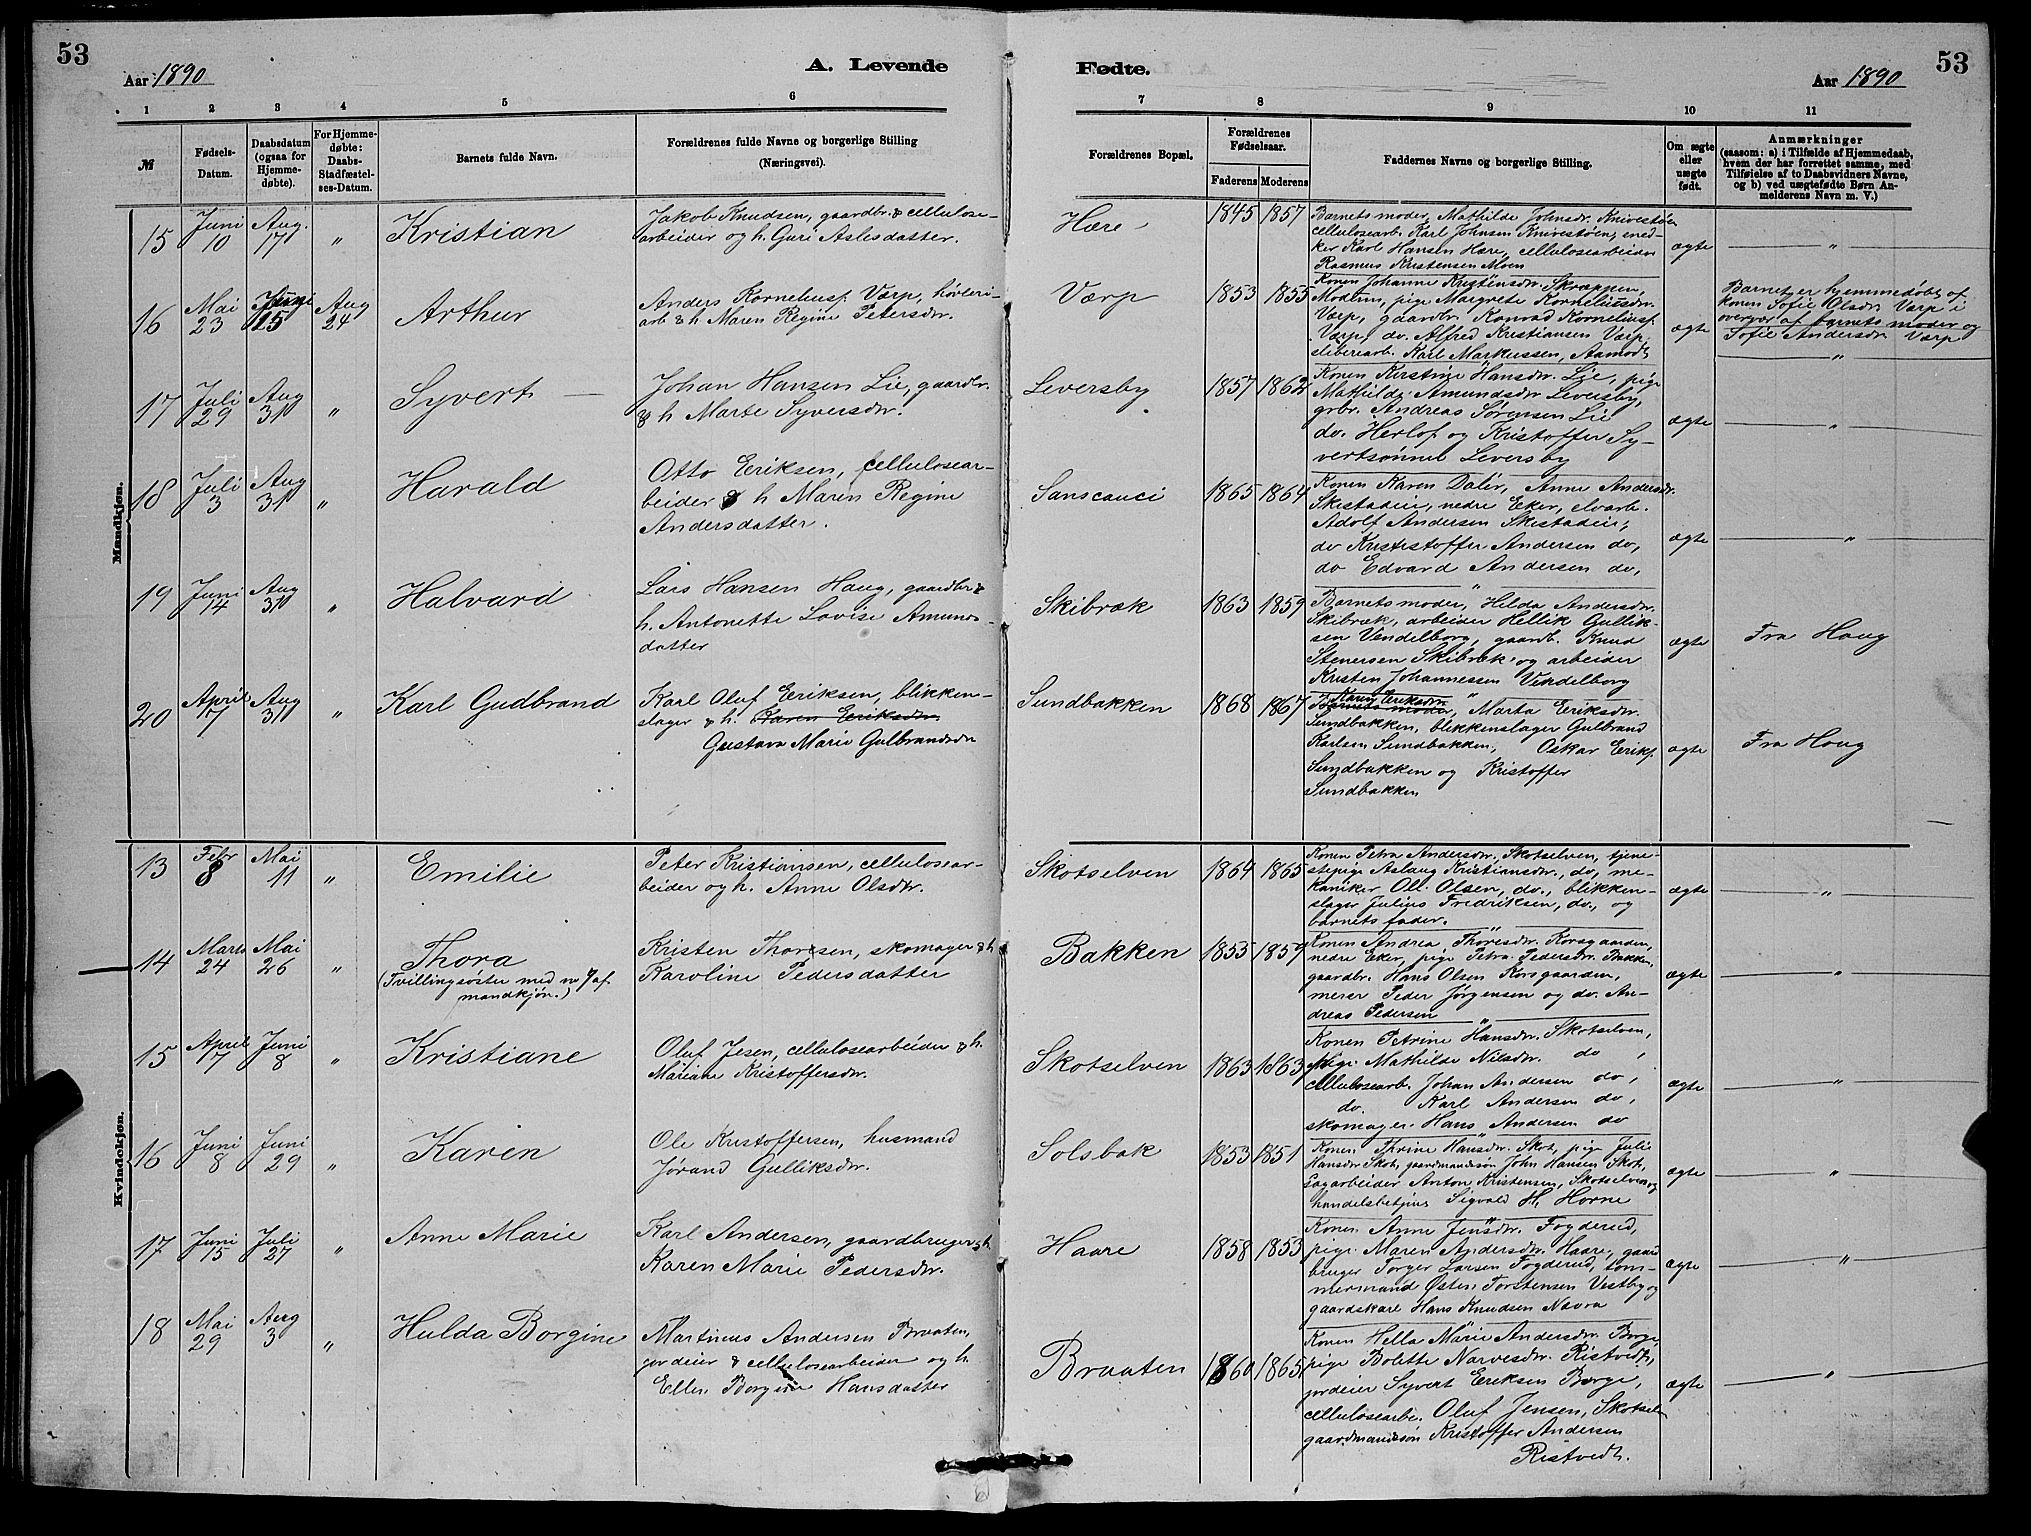 53
Aar 1890
A. Levende
1 2 3 4 5 6
№
Fødsels-Datum.
Daabsdatum (ogsaa for Hjemme-døbte).
For Hjemme-døbte: Daabs-Stadfæstel-ses-Datum.
Barnets fulde Navn.
Forældrenes fulde Navne og borgerlige Stilling
(Næringsvei).
Mandkjøn.
15 Juni 10 Aug. 17 " Kristian
Jakob Knudsen, gaardbr. & cellulose-
arbeider og h. Guri Aslesdatter.
16 Mai 23 Juni 15 Aug 24 Arthur
Anders Korneliusf. Værp, høvleri-
arb & h Maren Regine Petersdr.
17 Juli 29 Aug 31 " Syvert
Johan Hansen Lie, gaardbr.
& h Marte Syversdr.
18 Juli 3 Aug 31 " Harald
Otto Eriksen, cellulosear-
beider & h Maren Regine
Andersdatter.
19 Juni 14 Aug 31 " Halvard
Lars Hansen Haug, gaardbr &
h. Antonette Lovise Amunds-
datter
20 April 7 Aug 31 " Karl Gudbrand
Karl Oluf Eriksen, blikken-
slager & h. Karen Eriksdr.
Gustava Marie Gulbrandsdr
Kvindekjøn.
13 Febr 8 Mai 11 " Emilie
Peter Kristiansen, cellulosear-
beider og h. Anne Olsdr.
14 Marts 24 Mai 26 " Thora
(Tvillingsøster med no 7 af
mandkjøn.)
Kristen Thoresen, skomager & h
Karoline Pedersdatter
15 April 7 Juni 8 " Kristiane
Oluf Jesen, cellulosearbeider & h.
Mariane Kristoffersdr.
16 Juni 8 Juni 29 " Karen
Ole Kristoffersen, husmand
Jørand Gulliksdr.
17 Juni 15 Juli 27 " Anne Marie
Karl Andersen, gaardbruger & h.
Karen Marie Pedersdr.
18 Mai 29 Aug 3 " Hulda Borgine
Martinus Andersen Braaten,
jordeier & cellulosearbeider og h.
Ellen Borgine Hansdatter
Fødte.
Aar 1890
53
7 8 9 10 11
Forældrenes Bopæl.
Forældrenes Fødselsaar.
Faderens Moderens
Faddernes Navne og borgerlige Stilling.
Om ægte eller uægte født.
Anmærkninger
(saasom: a) i Tilfælde af Hjemmedaab,
hvem der har forrettet samme, med
Tilføielse af to Daabsvidners Navne,
og b) ved uægtefødte Børn An-
melderens Navn m. V.)
Hære 1845 1857
Barnets moder, Mathilde Johnsdr. Knivestøen
cellulosearb. Karl Johnsen Knivestøen, sned-
ker Karl Hansen Hære, cellulosearbeider
Rasmus Kristensen Moen
ægte "
Værp 1853 1855
Konen Johanne Kristensdr. Skræppen,
Modum, pige Margrete Korneliusdr.
Værp, gaardbr Konrad Korneliusf.
Værp, do. Alfred Kristiansen Værp,
sliberearb. Karl Markussen, Aamodt
ægte
Barnet er hjemmedøbt af
konen Sofie Olsdr Værp i
overvær af barnets moder og
Sofie Andersdr Værp
"
Leversby 1857 1862
Konen Kirstine Hansdr. Lie, pige
Mathilde Amundsdr Leversby,
grbr. Andreas Sørensen Lie
do. Herlof og Kristoffer Sy-
vertsønner Leversby
ægte "
Sanscouci 1865 1864
Konen Karen Daler, Anne Andersdr.
Skistadeie, nedre Eker, elvarb.
Adolf Andersen Skistadeie,
do Krististoffer Andersen do,
do Edvard Andersen do,
ægte "
Skibræk 1863 1859
Barnets moder, Hilda Andersdr.
Skibræk, arbeider Hellik Gullik-
sen Vendelborg, gaardb. Knud
Stenersen Skibræk og arbeider
Kristen Johannessen Vendelborg
ægte Fra Haug
Sundbakken 1868 1867
Karen Eriksdr.
Barnets moder, Marta Eriksdr.
Sundbakken, blikkenslager Gulbrand
Karlsen Sundbakken, Oskar Eriks.
Sundbakken og Kristoffer
Sundbakken
ægte Fra Haug
Skotselven 1864 1865
Konen Petra Andersdr. Skotselven, tjene-
stepige Aslaug Kristiansdr., do, me-
kaniker Ole Olsen, do., blikken-
slager Julius Fredriksen, do., og
barnets fader.
ægte "
Bakken 1855 1859
Konen Andrea Thoresdr. Korsgaarden,
nedre Eker, pige Petra Pedersdr. Bakken,
gaardbr. Hans Olsen Korsgaarden,
murer Peder Jørgensen og do. An-
dreas Pedersen
ægte "
Skotselven 1863 1863
Konen Petrine Hansdr. Skotselven,
pige Mathilde Nilsdr. do,
cellulosearb. Johan Andersen do,
do. Karl Andersen do,
skomager Hans Andersen do
ægte "
Solsbak 1853 1851
Konen Thrine Hansdr. Skot, pige Julie
Hansdr Skot, gaardmandssøn John Hansen Skot,
sagarbeider Anton Kristensen, Skotselven og
handelsbetjent Sigvald H. Horne
ægte "
Haare 1858 1853
Konen Anne Jensdr. Fogderud,
pige Maren Andersdr. Haare, gaard
bruger Torger Larsen Fogderud, tøm-
mermand Østen Torstensen Vestby og
gaardskarl Hans Knudsen Navra
ægte "
Braaten 1860 1865
Konen Hella Marie Andersdr. Borge,
pige Bolette Narvesdr. Ristvedt,
jordeier Syvert Eriksen Borge,
cellulosearbe. Oluf Jensen, Skotselv
gaardmandssøn Kristoffer Andersen
Ristvedt.
ægte "